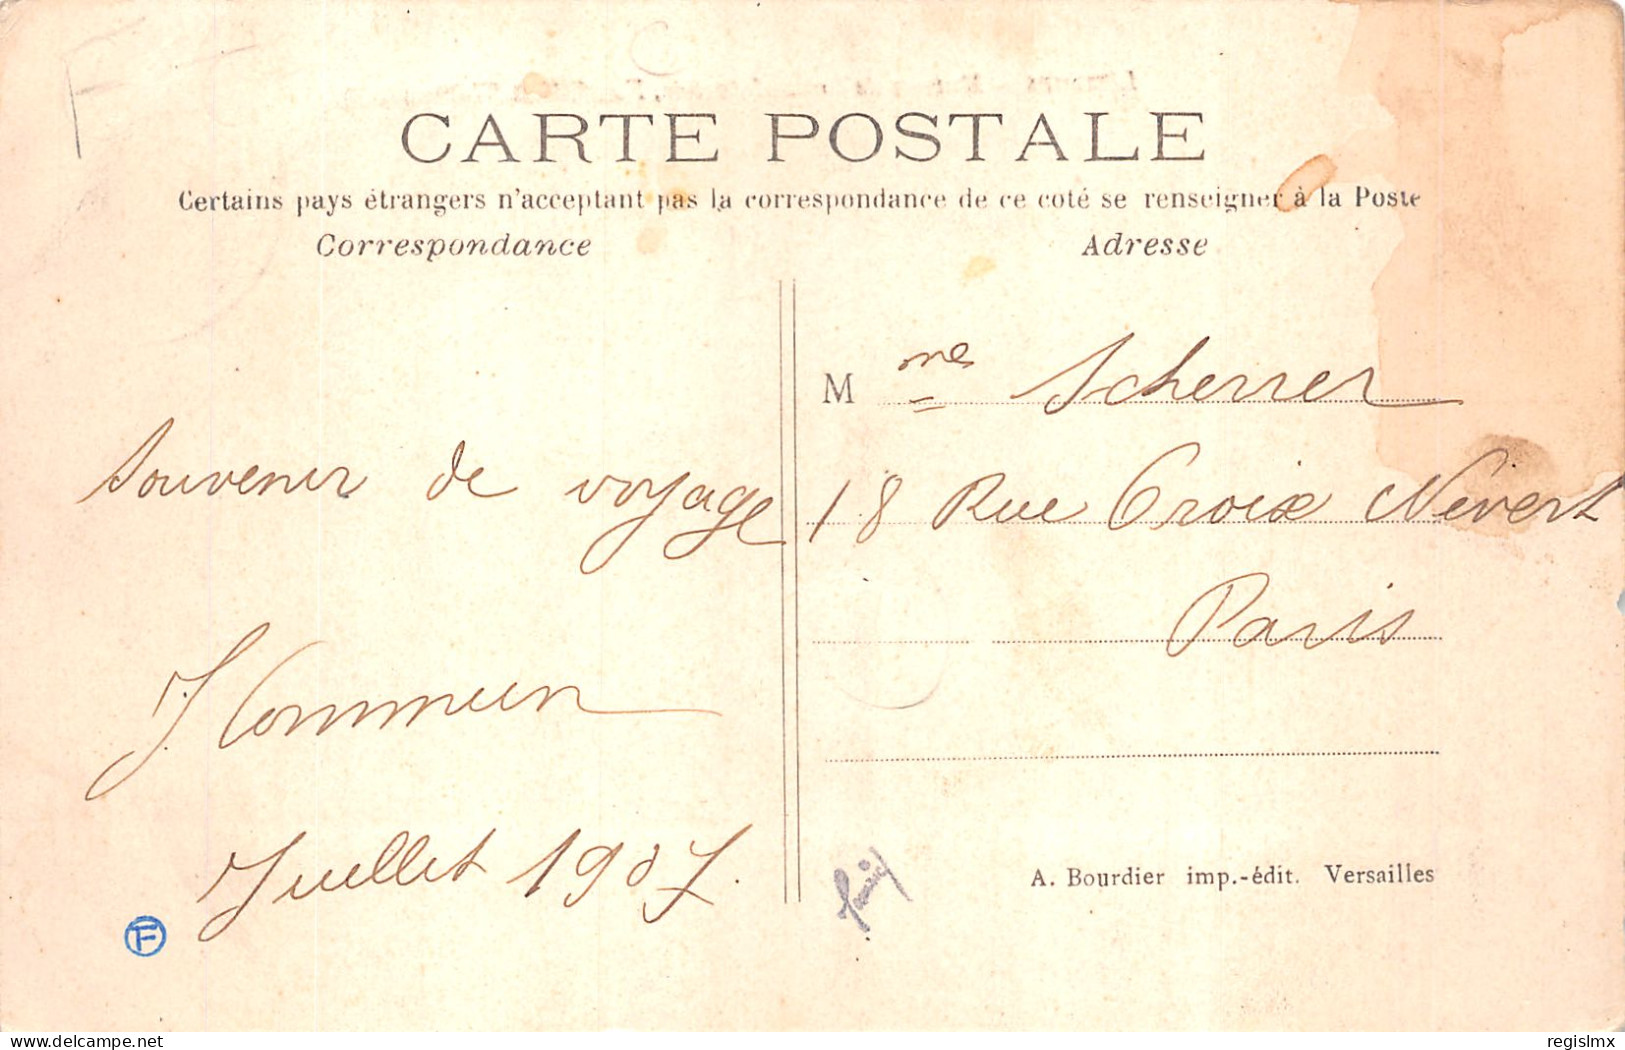 CARTE POSTALE
Certains pays étrangers n'acceptant pas la correspondance de ce coté se renseigner à la Poste
Correspondance
Adresse
Souvenir de voyage
J Commun
Juillet 1907.
Mme Scherrer
18 Rue Croix Nivert
Paris
A. Bourdier imp.-édit. Versailles
F
F
delcampe.net
regislmx